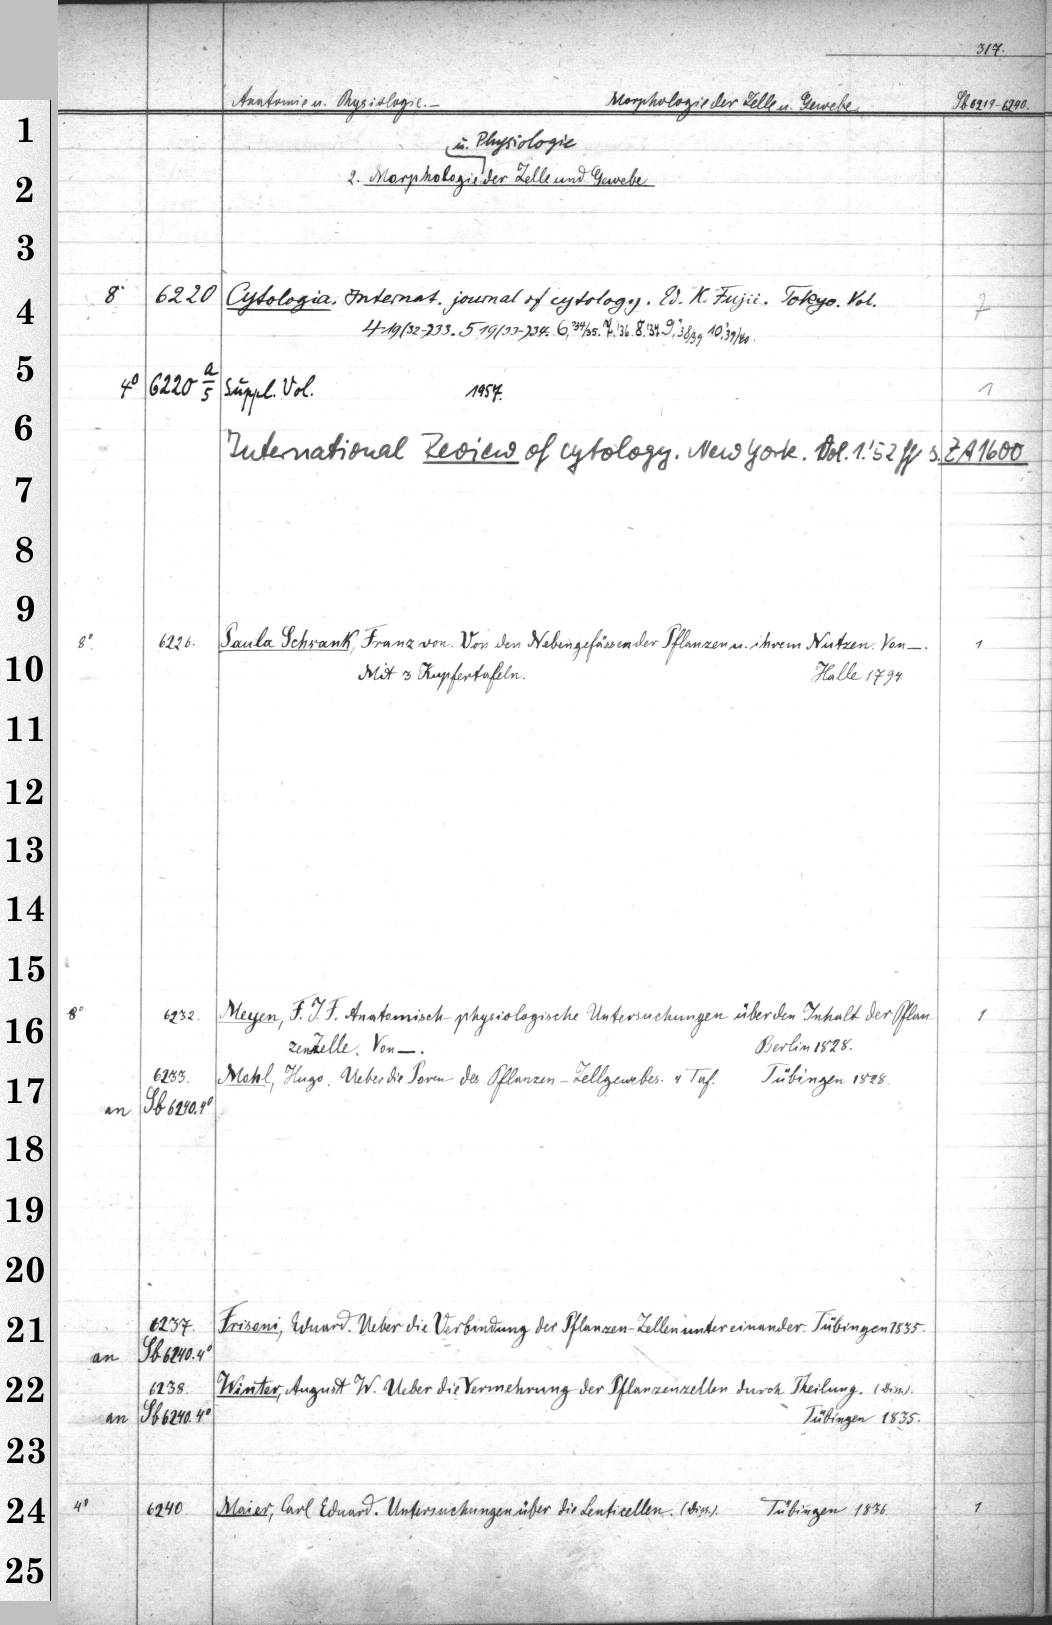 317.
Anatomie u. Physiologie.— Morphologie der Zelle u. Gewebe. Sb 6219-6240.
1
u. Physiologie
2 2. Morphologie der Zelle und Gewebe
3
8° 6220 Cytologia. Internat. journal of cytology. Ed. K. Fujii. Tokyo. Vol. 7
4 4.19(32-)33. 5 19(33-)34. 6,'34/35. 7.'36. 8.'37. 9,'38/39 10,'39/40.
5 4° 6220 a/5 Suppl. Vol. 1957. 1
6 International Review of cytology. New York. Vol. 1.'52 ff s. ZA 1600
7
8
9
8°. 6226. Paula Schrank, Franz von. Von den Nebengefässen der Pflanzen u. ihrem Nutzen. Von —. 1
10 Mit 3 Kupfertafeln. Halle 1794
11
12
13
14
15
8° 6232. Meyen, F. J. F. Anatomisch-physiologische Untersuchungen über den Inhalt der Pflan 1
16 zenzelle. Von —. Berlin 1828.
6233. Mohl, Hugo. Ueber die Poren des Pflanzen-Zellgewebes. 4 Taf. Tübingen 1828.
17 an Sb 6240.4°
18
19
20
21 6237. Frisoni, Eduard. Ueber die Verbindung der Pflanzen-Zellen untereinander. Tübingen 1835.
an Sb 6240.4°
22 6238. Winter, August W. Ueber die Vermehrung der Pflanzenzellen durch Theilung. (Diss.).
an Sb 6240.4° Tübingen 1835.
23
24 4° 6240 Maier, Carl Eduard. Untersuchungen über die Lenticellen. (Diss.). Tübingen 1836. 1
25